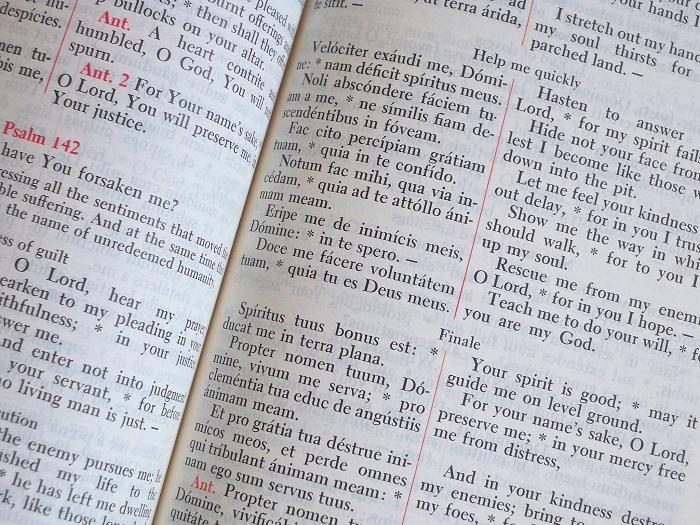 despícies.
pleased
burnt offerings
* then shall they
bullocks on your altar.
Ant. A heart contrite
humbled, O God, You will
spurn.
Ant. 2 For Your name's sake,
O Lord, You will preserve me,
Your justice.
Psalm 142
have You forsaken me?
all the sentiments that moved
suffering. And at the same time
the name of unredeemed humanity,
of guilt
O Lord, hear my prayer
to my pleading in
* in your justice
me.
enter not into judgment
your servant, * for before
living man is just. –
the enemy pursues me;
my life to the
* he has left me dwelling
like those
terra árida,
Velóciter exáudi me, Dómi-
ne: * nam déficit spíritus meus.
Noli abscóndere fáciem tu-
am a me, * ne símilis fiam de-
scendéntibus in fóveam.
Fac cito percípiam grátiam
tuam, * quia in te confído.
Notum fac mihi, qua via in-
cédam, * quia ad te attóllo áni-
mam meam.
Eripe me de inimícis meis,
Dómine: * in te spero. –
Doce me fácere voluntátem
tuam, * quia tu es Deus meus.
Spíritus tuus bonus est: *
ducat me in terra plana.
Propter nomen tuum, Dó-
mine, vivum me serva; * pro
cleméntia tua educ de angústiis
ánimam meam.
Et pro grátia tua déstrue ini-
mícos meos, et perde omnes
qui tríbulant ánimam meam: *
nam ego sum servus tuus.
Ant. Propter nomen
Dómine,
your hands
I stretch out my hand
my soul thirsts for
parched land. –
Help me quickly
Hasten to answer
Lord, * for my spirit
Hide not your face from
lest I become like those
down into the pit.
Let me feel your kindness
out delay, * for in you I
Show me the way in
should walk, * for to you I
up my soul.
Rescue me from my
O Lord, * for in you I hope. –
Teach me to do your will, *
you are my God.
Finale
Your spirit is good; * may it
guide me on level ground.
For your name's sake, O Lord,
preserve me; * in your mercy free
me from distress,
And in your kindness
my enemies; bring to
my foes, *